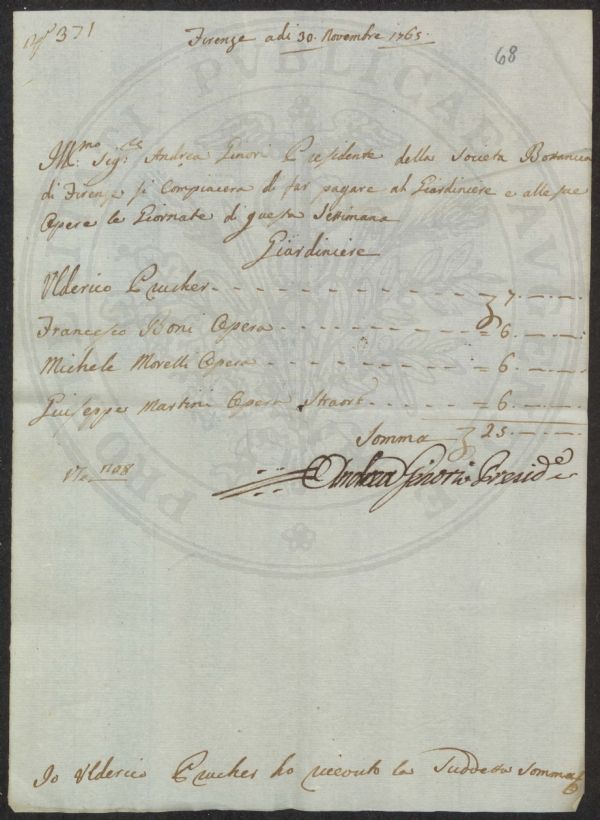 N.o 371
Firenze adi 30. Novembre 1765.
68
Ill.mo Sig.re Andrea Ginori Presidente della Società Bottanica
di Firenze si compiacerà di far pagare al Giardiniere e alle sue
Opere le Giornate di questa Settimana
Giardiniere
Ulderico Prucher - - - - - - - - 7. — . —
Francesco Boni Opera - - - - - - = 6. — . —
Michele Morelli Opera - - - - - - = 6. — . —
Giuseppe Martini Opera Straord. - - - - - = 6. — . —
Somma 25. — . —
n.o 8
Andrea Ginori Presid.e
Io Ulderico Prucher ho riceuto la Suddetta Somma
PRO PUBLICAE AUGEN